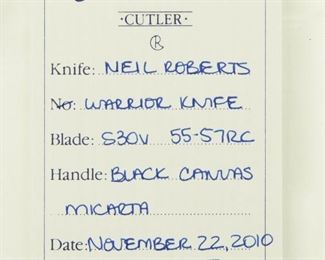 ·CUTLER·
Knife: NEIL ROBERTS
No: WARRIOR KNIFE
Blade: S30V 55-57RC
Handle: BLACK CANVAS
MICARTA
Date: NOVEMBER 22, 2010